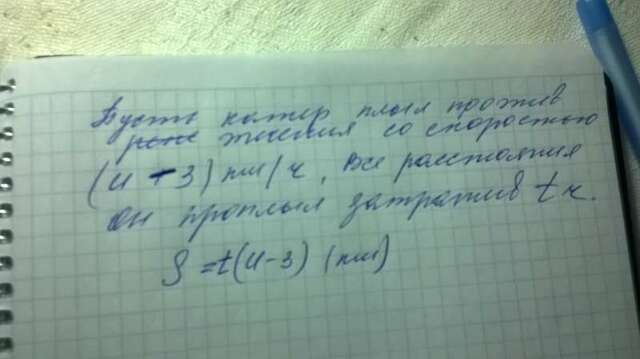 Пусть катер плыл против
реке течения со скоростью
(u - 3) км/ч, все расстояния
он проплыл затратив t ч.
S = t(u-3) (км)